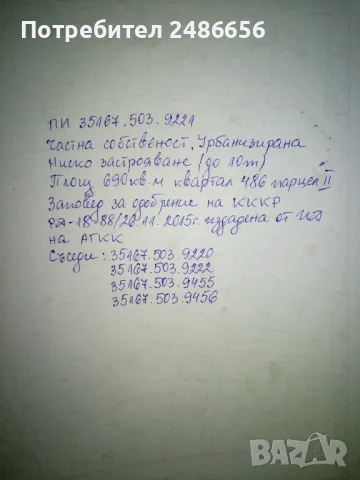 Потребител 2486656
ПИ 35167.503.9221
Частна собственост, Урбанизирана
Ниско застрояване (до 10m)
Площ 690кв.м квартал 486 парцел II
Заповед за одобрение на КККР
РД-18-88/26.11.2015г. издадена от ИД
на АГКК
Съседи: 35167.503.9220
35167.503.9222
35167.503.9455
35167.503.9456
BAZAR